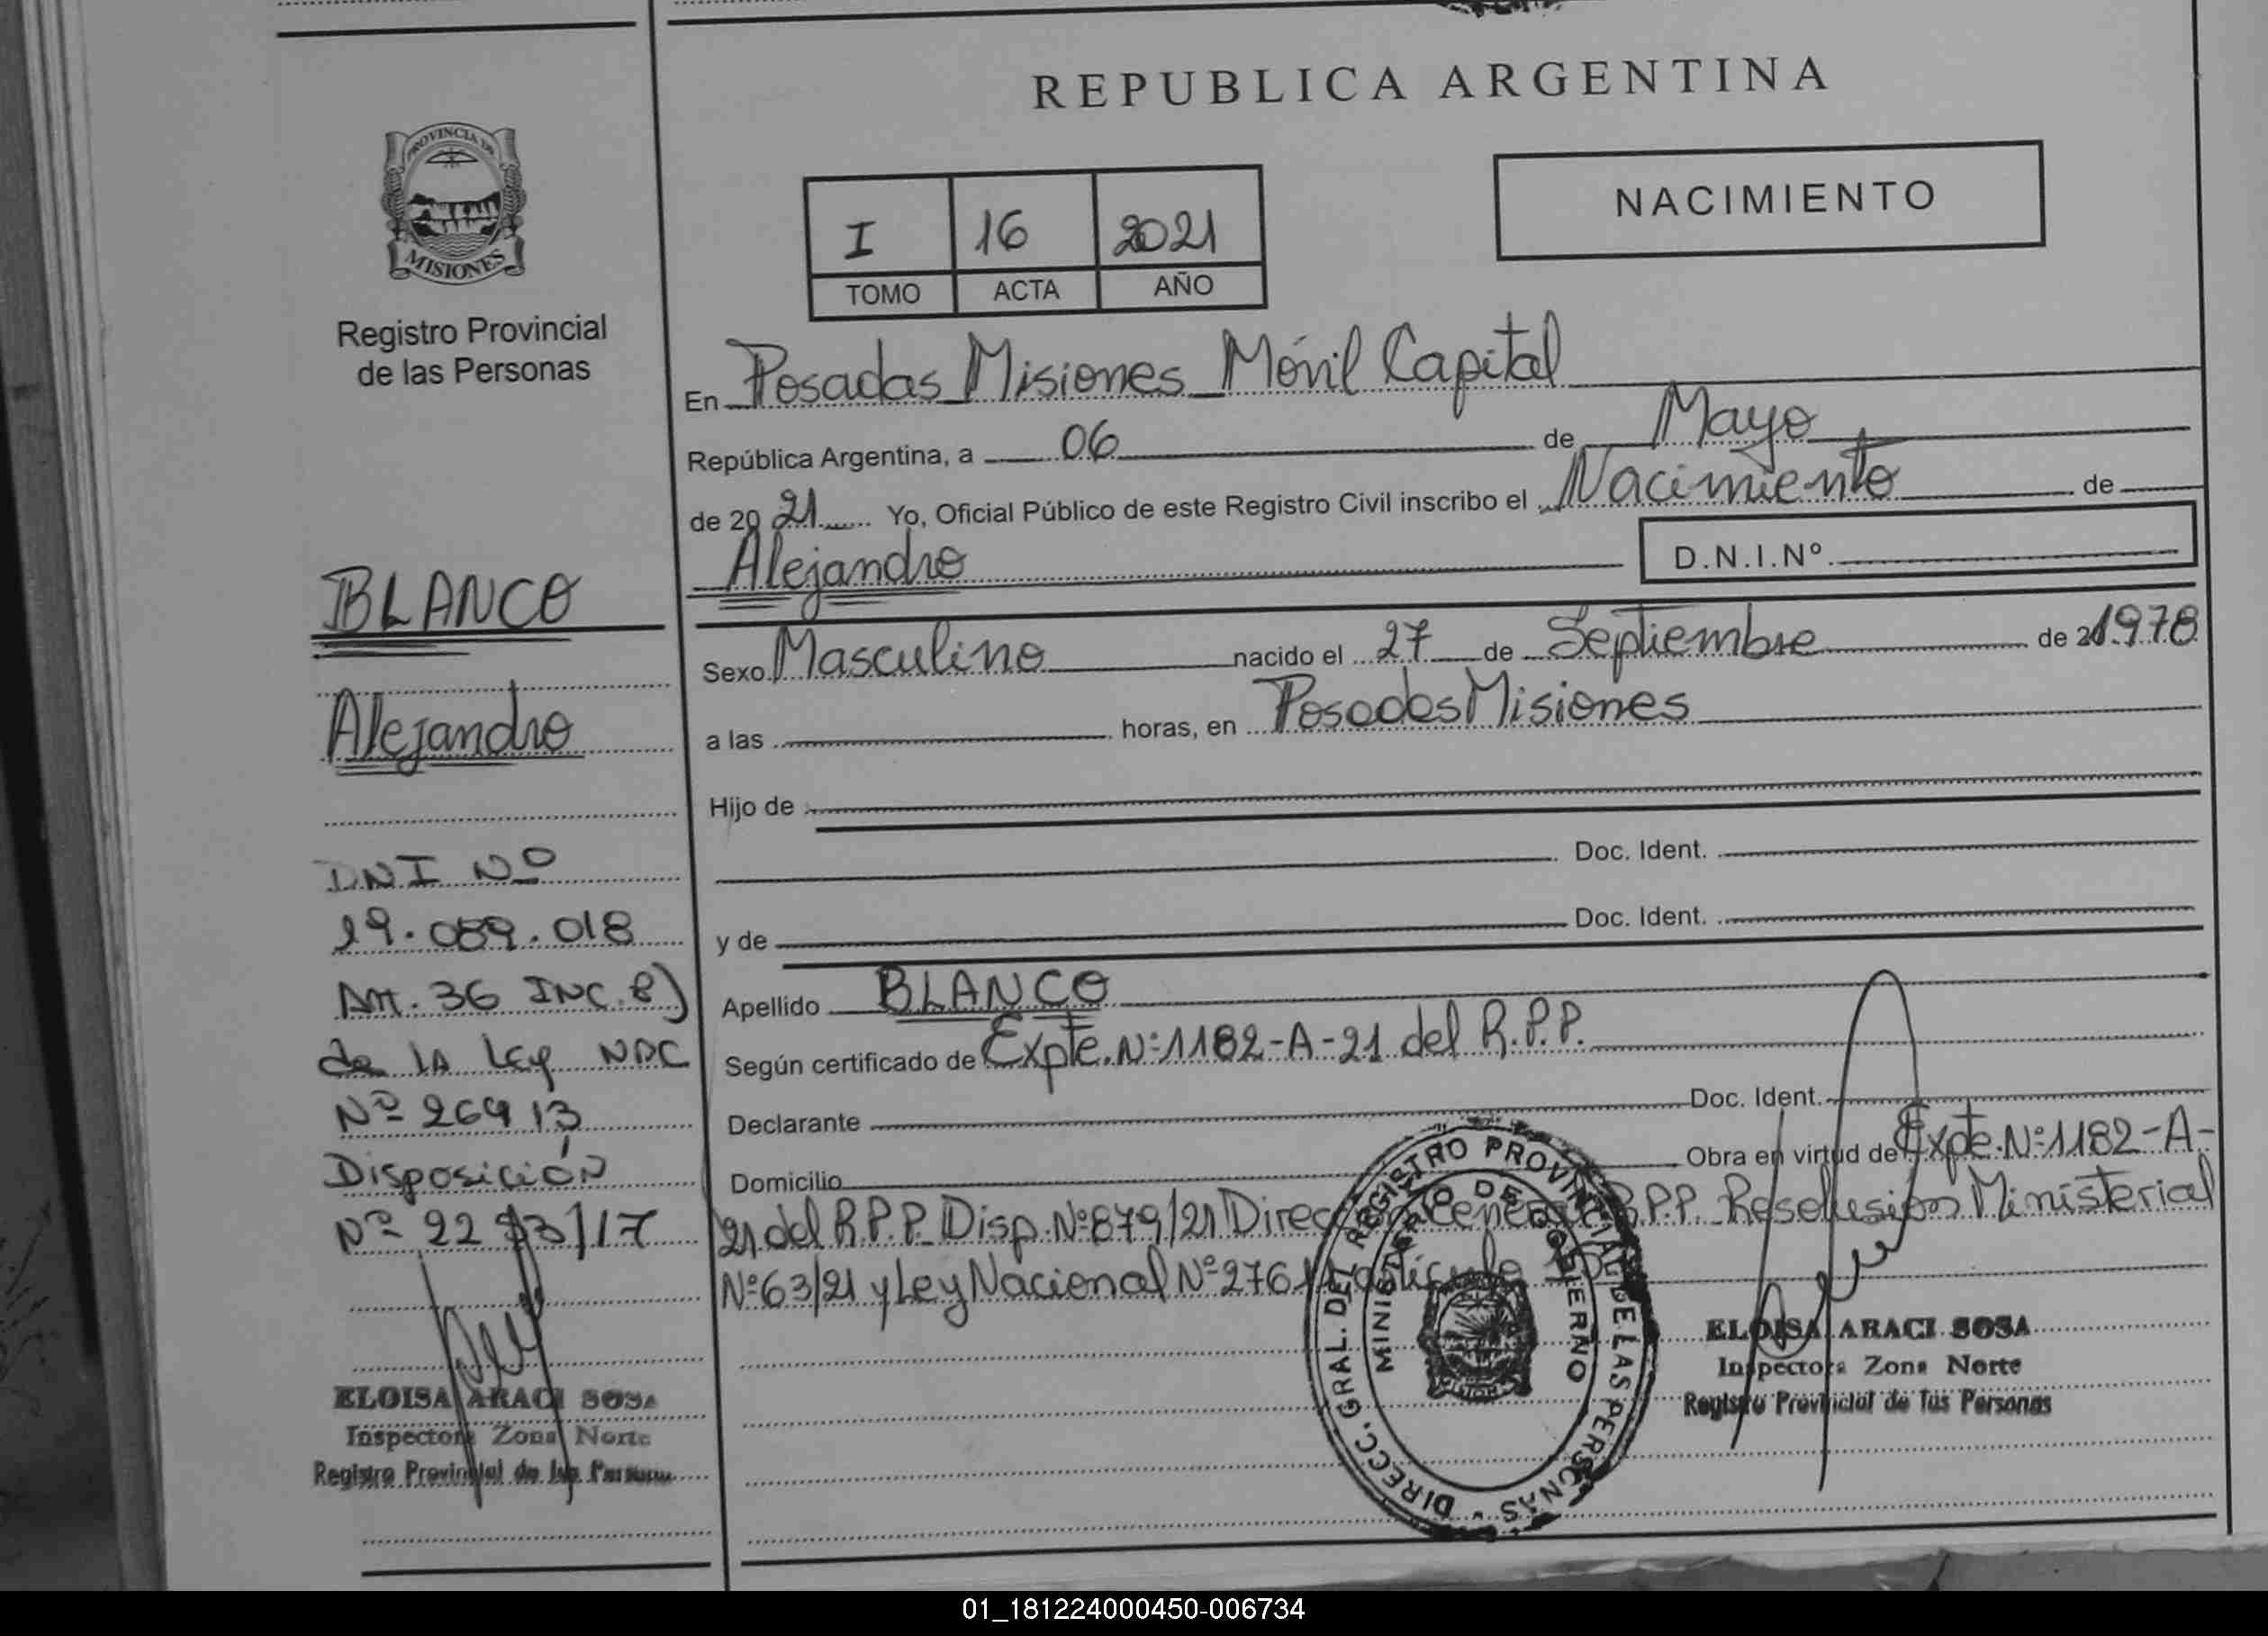 REPUBLICA ARGENTINA
PROVINCIA DE
MISIONES
Registro Provincial
de las Personas
I 16 2021
TOMO ACTA AÑO
NACIMIENTO
En Posadas Misiones Móvil Capital
República Argentina, a 06 de Mayo
de 2021 Yo, Oficial Público de este Registro Civil inscribo el Nacimiento de
Alejandro D.N.I.Nº
Sexo Masculino nacido el 27 de Septiembre de 1978
a las horas, en Posadas Misiones
Hijo de
Doc. Ident.
y de Doc. Ident.
Apellido BLANCO
Según certificado de Expte. Nº 1182-A-21 del R.P.P.
Declarante Doc. Ident.
Domicilio Obra en virtud de Expte. Nº 1182-A-
21 del R.P.P. Disp. Nº 879/21 R.P.P. Resolusión Ministerial
Nº 63/21 y Ley Nacional Nº
DIRECC. GRAL. DEL REGISTRO PROVINCIAL DE LAS PERSONAS
MINISTERIO DE GOBIERNO
ELOISA ARACI SOSA
Inspectora Zona Norte
Registro Provincial de las Personas
BLANCO
Alejandro
DNI Nº
19.089.018
Art. 36 INC. B)
de la Ley
Nº 26413
Disposición
Nº
ELOISA ARACI SOSA
Inspectora Zona Norte
Registro Provincial de las Personas
01_181224000450-006734